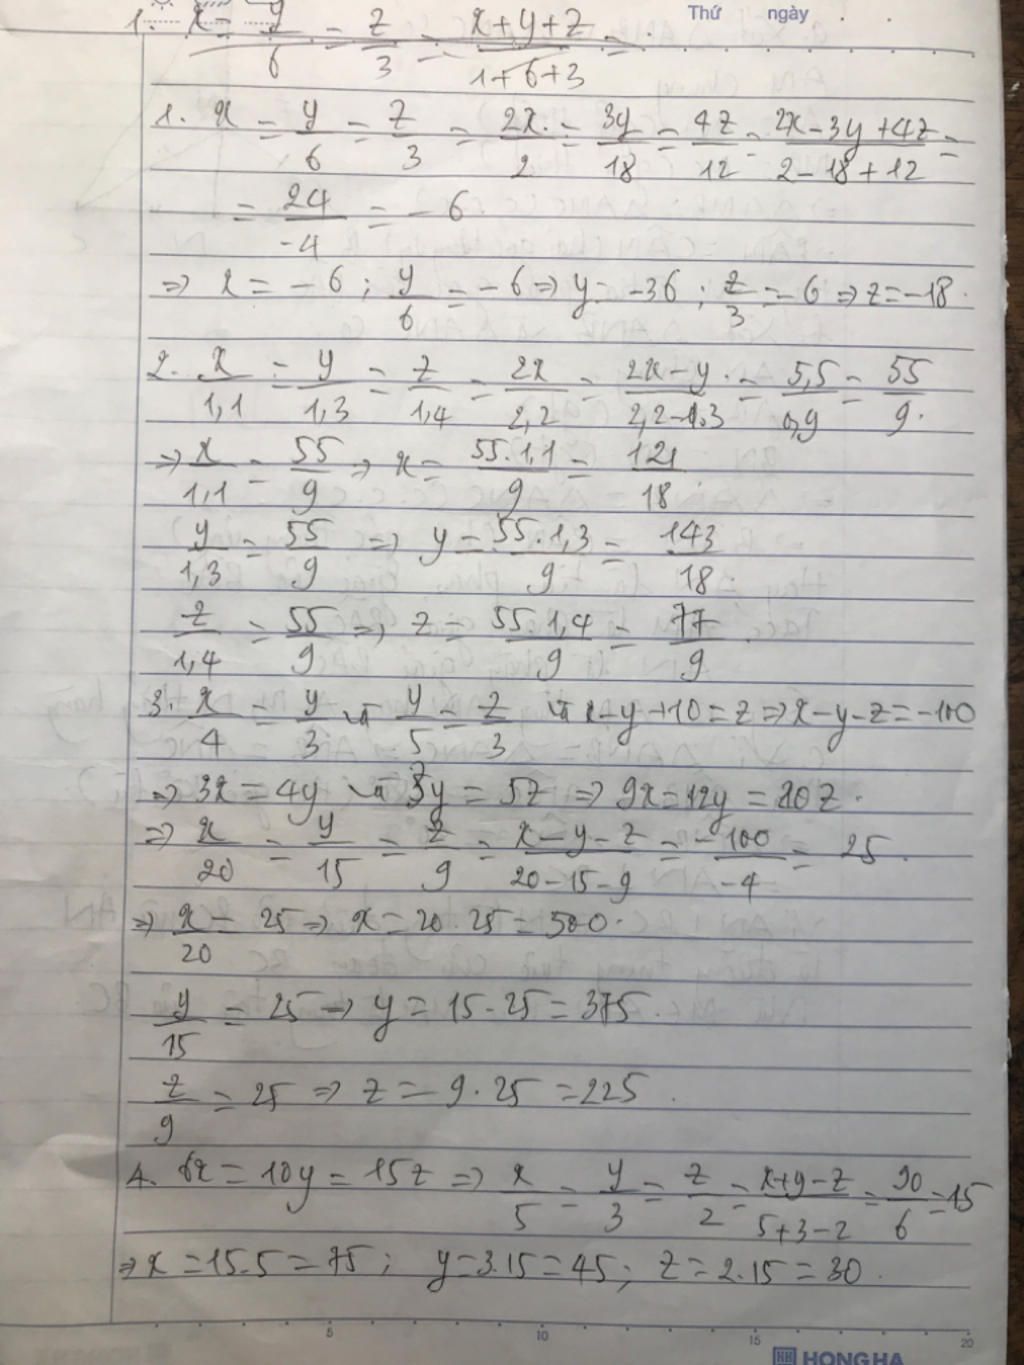 Thứ ngày
1. x = y/6 = z/3 = (x+y+z)/(1+6+3) =
1. x = y/6 = z/3 = 2x/2 = 3y/18 = 4z/12 = (2x-3y+4z)/(2-18+12) =
= 24/-4 = -6
=> x = -6 ; y/6 = -6 => y = -36 ; z/3 = -6 => z = -18.
2. x/1,1 = y/1,3 = z/1,4 = 2x/2,2 = (2x-y)/(2,2-1,3) = 5,5/0,9 = 55/9.
=> x/1,1 = 55/9 => x = 55.1,1/9 = 121/18
y/1,3 = 55/9 => y = 55.1,3/9 = 143/18.
z/1,4 = 55/9 => z = 55.1,4/9 = 77/9.
3. x/4 = y/3 và y/5 = z/3 và x-y+100 = z => x-y-z = -100
=> 3x = 4y và 3y = 5z => 9x = 12y = 20z.
=> x/20 = y/15 = z/9 = (x-y-z)/(20-15-9) = -100/-4 = 25.
=> x/20 = 25 => x = 20.25 = 500.
y/15 = 25 => y = 15.25 = 375.
z/9 = 25 => z = 9.25 = 225.
4. 6x = 10y = 15z => x/5 = y/3 = z/2 = (x+y-z)/(5+3-2) = 90/6 = 15
=> x = 15.5 = 75 ; y = 3.15 = 45 ; z = 2.15 = 30.
5 10 15 20
HH HONG HA